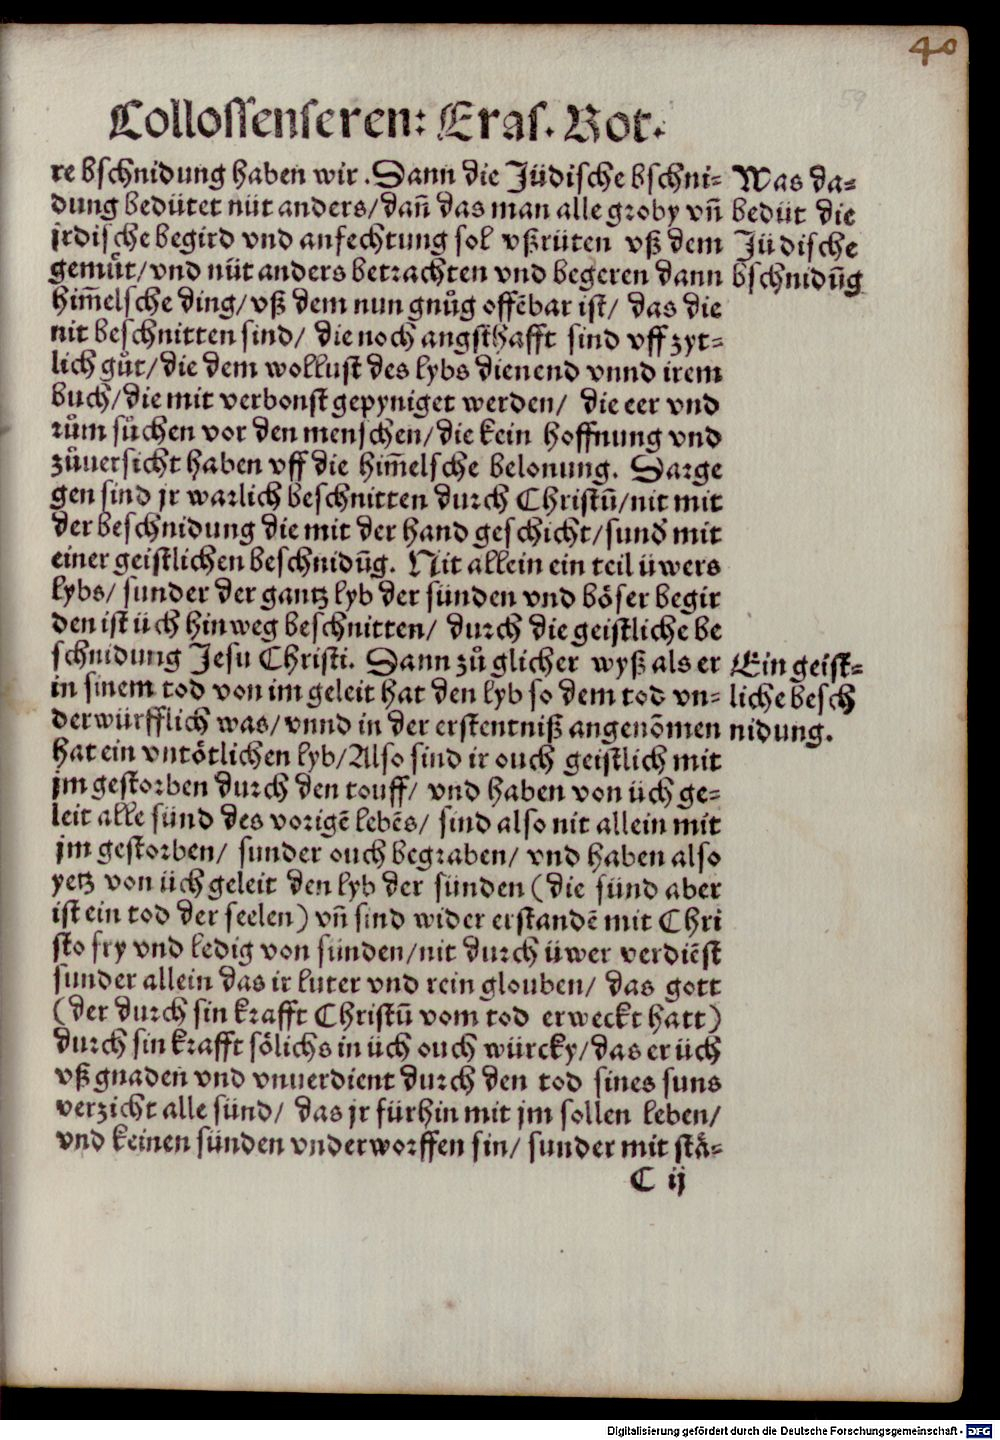 40
59
Collossenseren: Eras. Rot.
re bschnidung haben wir. Dann die Jüdische bschni=
dung bedütet nüt anders/ dañ das man alle groby vñ
jrdische begird vnd anfechtung sol vßrüten vß dem
gemuͤt/ vnd nüt anders betrachten vnd begeren dann
him̃elsche ding/ vß dem nun gnuͦg offēbar ist/ das die
nit beschnitten sind/ die noch angsthafft sind vff zyt=
lich guͦt/ die dem wollust des lybs dienend vnnd irem
buch/ die mit verbonst gepyniget werden/ die eer vnd
ruͦm suͦchen vor den menschen/ die kein hoffnung vnd
zuͦuersicht haben vff die him̃elsche belonung. Darge
gen sind jr warlich beschnitten durch Christū/ nit mit
der beschnidung die mit der hand geschicht/ sund̓ mit
einer geistlichen beschnidūg. Nit allein ein teil üwers
lybs/ sunder der gantz lyb der sünden vnd böser begir
den ist üch hinweg beschnitten/ durch die geistliche be
schnidung Jesu Christi. Dann zuͦ glicher wyß als er
in sinem tod von im geleit hat den lyb so dem tod vn=
derwürfflich was/ vnnd in der erstentniß angenōmen
hat ein vntötlichen lyb/ Also sind ir ouch geistlich mit
jm gestorben durch den touff/ vnd haben von üch ge=
leit alle sünd des vorigē lebēs/ sind also nit allein mit
jm gestorben/ sunder ouch begraben/ vnd haben also
yetz von üch geleit den lyb der sünden (die sünd aber
ist ein tod der seelen) vñ sind wider erstandē mit Chri
sto fry vnd ledig von sünden/ nit durch üwer verdiēst
sunder allein das ir luter vnd rein glouben/ das gott
(der durch sin krafft Christū vom tod erweckt hatt)
durch sin krafft sölichs in üch ouch würcky/ das er üch
vß gnaden vnd vnuerdient durch den tod sines suns
verzicht alle sünd/ das jr fürhin mit jm sollen leben/
vnd keinen sünden vnderworffen sin/ sunder mit stä=
C ij
Was da=
bedüt die
Jüdische
bschnidūg
Ein geist=
liche besch
nidung.
Digitalisierung gefördert durch die Deutsche Forschungsgemeinschaft - DFG